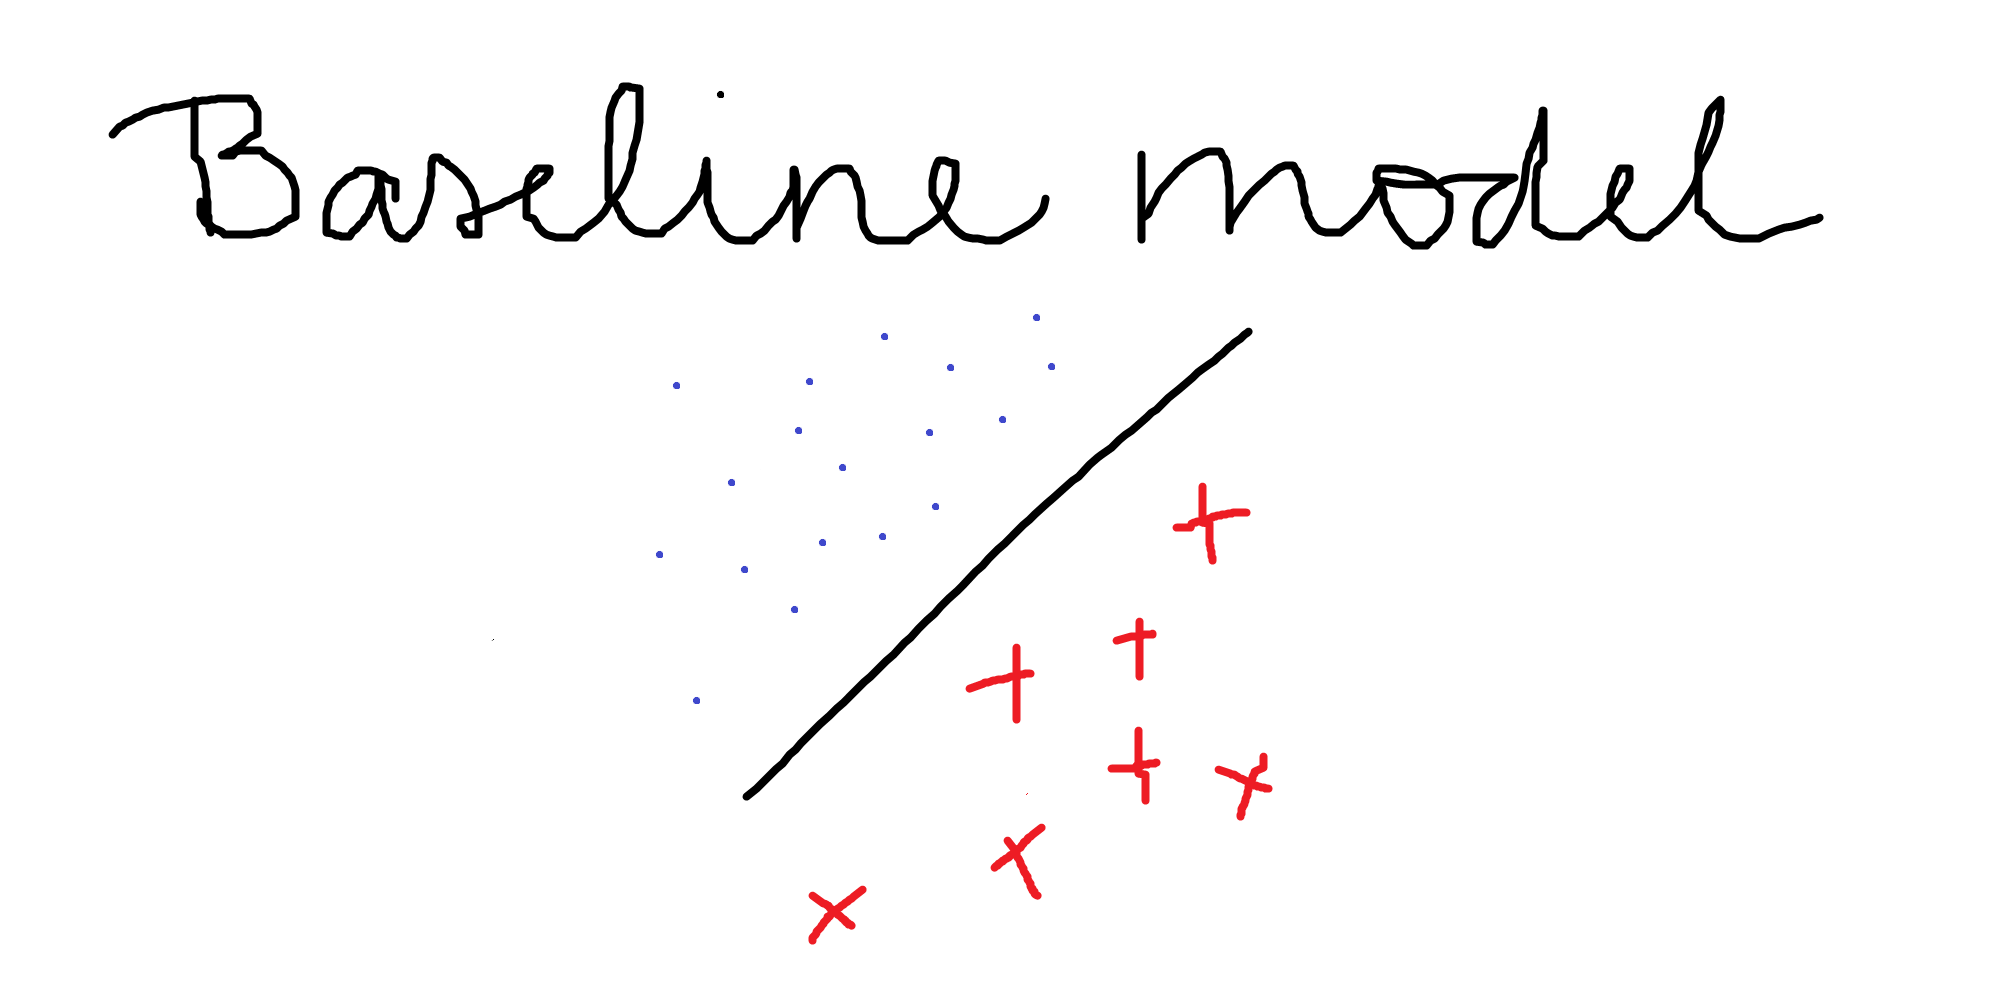 Baseline model